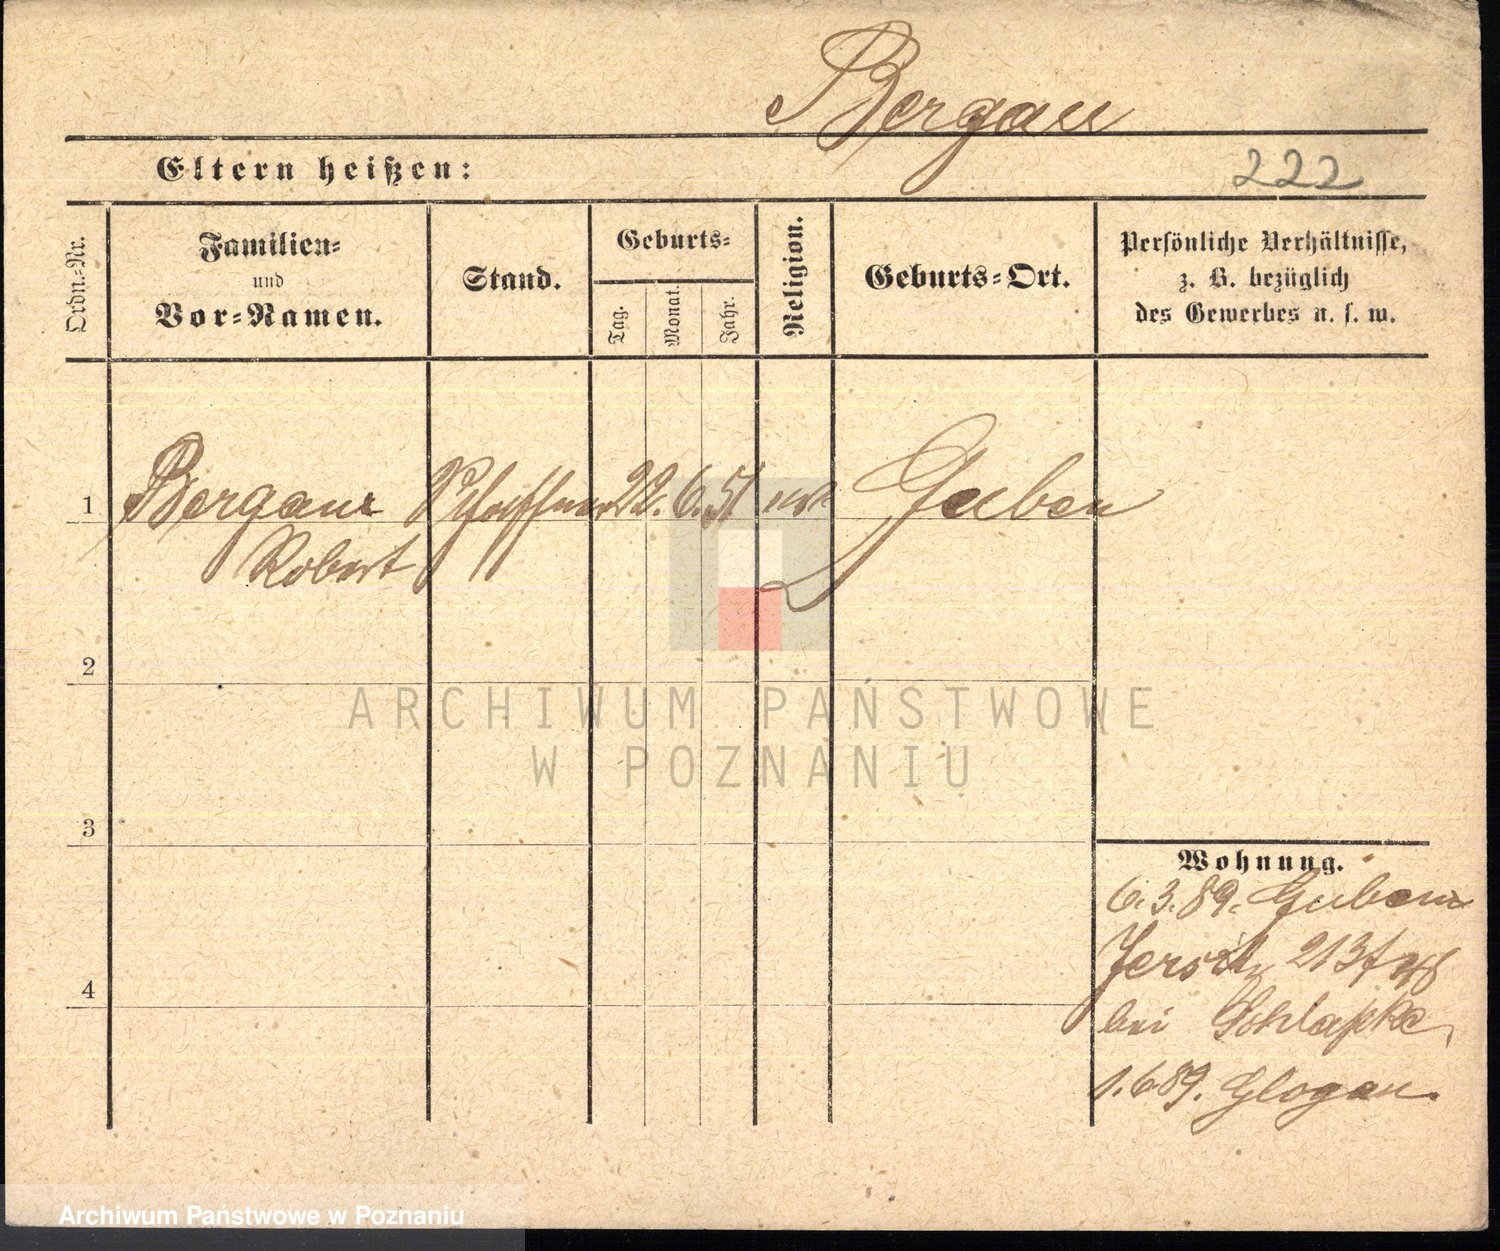 Bergau
Eltern heißen:
222
Ordn.-Nr.
Familien-
und
Vor-Namen.
Stand.
Geburts-
Tag.
Monat.
Jahr.
Religion.
Geburts-Ort.
Persönliche Verhältnisse,
z. B. bezüglich
des Gewerbes u. s. w.
1 Bergau Schaffner 22. 6. 51 Guben
Robert
2
3
4
Wohnung.
6.3.89. Guben
Jersitz 213
bei Schlapke
1.6.89. Glogau.
ARCHIWUM PAŃSTWOWE
W POZNANIU
Archiwum Państwowe w Poznaniu